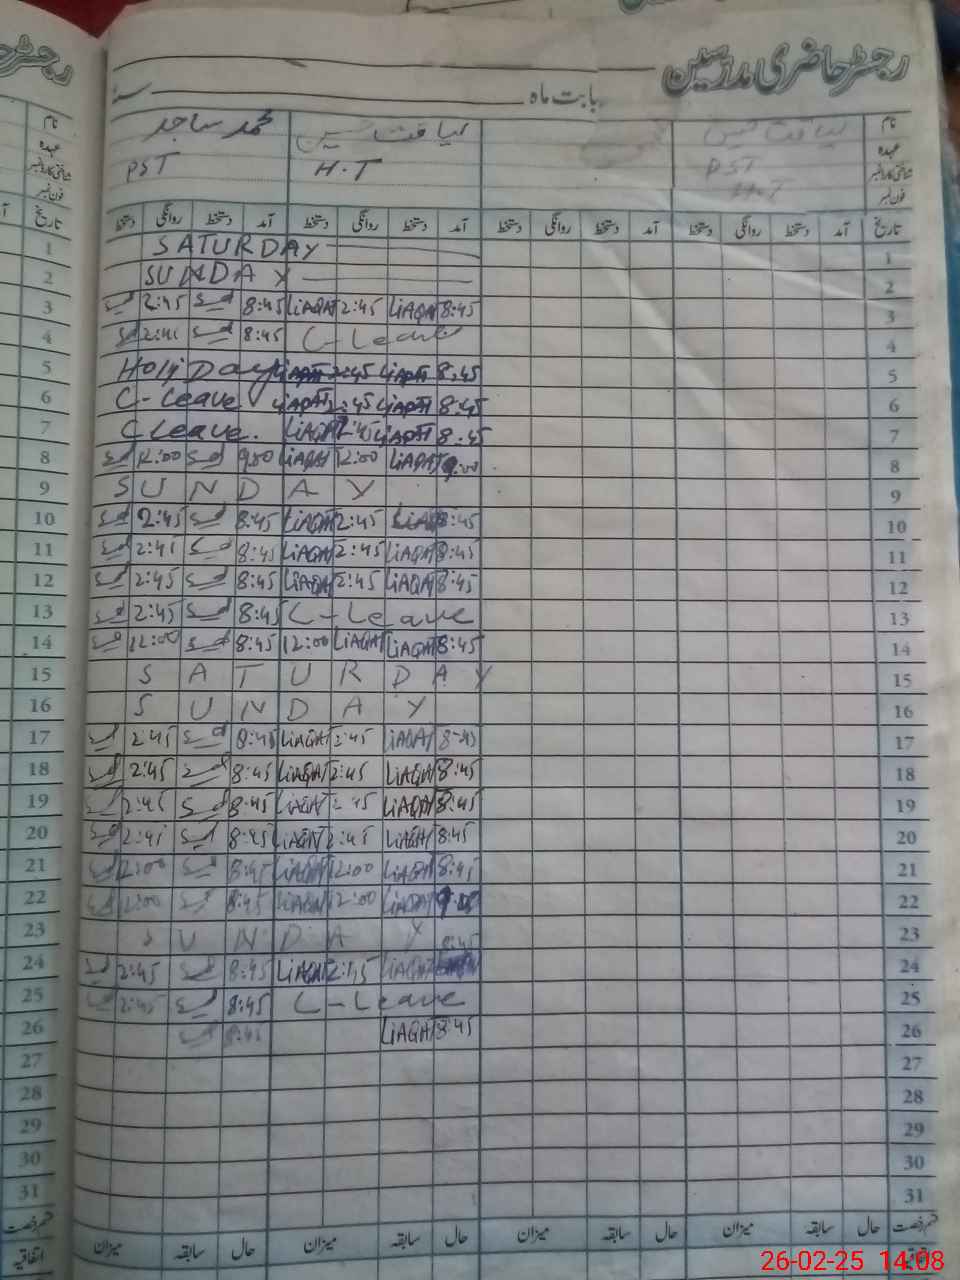 رجسٹر حاضری مدرسین
بابت ماہ سنہ
نام لیاقت حسین لیاقت حسین محمد ساجد
عہدہ PST H.T PST
شناختی کارڈ نمبر H.T
فون نمبر
تاریخ آمد دستخط روانگی دستخط آمد دستخط روانگی دستخط آمد دستخط روانگی دستخط آمد دستخط روانگی دستخط
1 SATURDAY 1
2 SUNDAY 2
3 2:45 8:45 LiAQAT 2:45 LiAQAT 8:45 3
4 2:45 8:45 C-Leave 4
5 HoliDay LiAQAT 2:45 LiAQAT 8:45 5
6 C-Leave LiAQAT 2:45 LiAQAT 8:45 6
7 C Leave. LiAQAT 2:45 LiAQAT 8:45 7
8 12:00 9:00 LiAQAT 12:00 LiAQAT 9:00 8
9 SUNDAY 9
10 2:45 8:45 LiAQAT 2:45 LiAQAT 8:45 10
11 2:45 8:45 LiAQAT 2:45 LiAQAT 8:45 11
12 2:45 8:45 LiAQAT 2:45 LiAQAT 8:45 12
13 2:45 8:45 C-Leave 13
14 12:00 8:45 12:00 LiAQAT LiAQAT 8:45 14
15 SATURDAY 15
16 SUNDAY 16
17 2:45 8:45 LiAQAT 2:45 LiAQAT 8:45 17
18 2:45 8:45 LiAQAT 2:45 LiAQAT 8:45 18
19 2:45 8:45 LiAQAT 2:45 LiAQAT 8:45 19
20 2:45 8:45 LiAQAT 2:45 LiAQAT 8:45 20
21 12:00 8:45 LiAQAT 12:00 LiAQAT 8:45 21
22 12:00 8:45 LiAQAT 12:00 LiAQAT 22
23 SUNDAY 23
24 2:45 8:45 LiAQAT 2:45 LiAQAT 8:45 24
25 2:45 8:45 C-Leave 25
26 8:45 LiAQAT 8:45 26
27 27
28 28
29 29
30 30
31 31
حال سابقہ میزان حال سابقہ میزان حال سابقہ میزان حال سابقہ میزان
اتفاقیہ
26-02-25 14:08